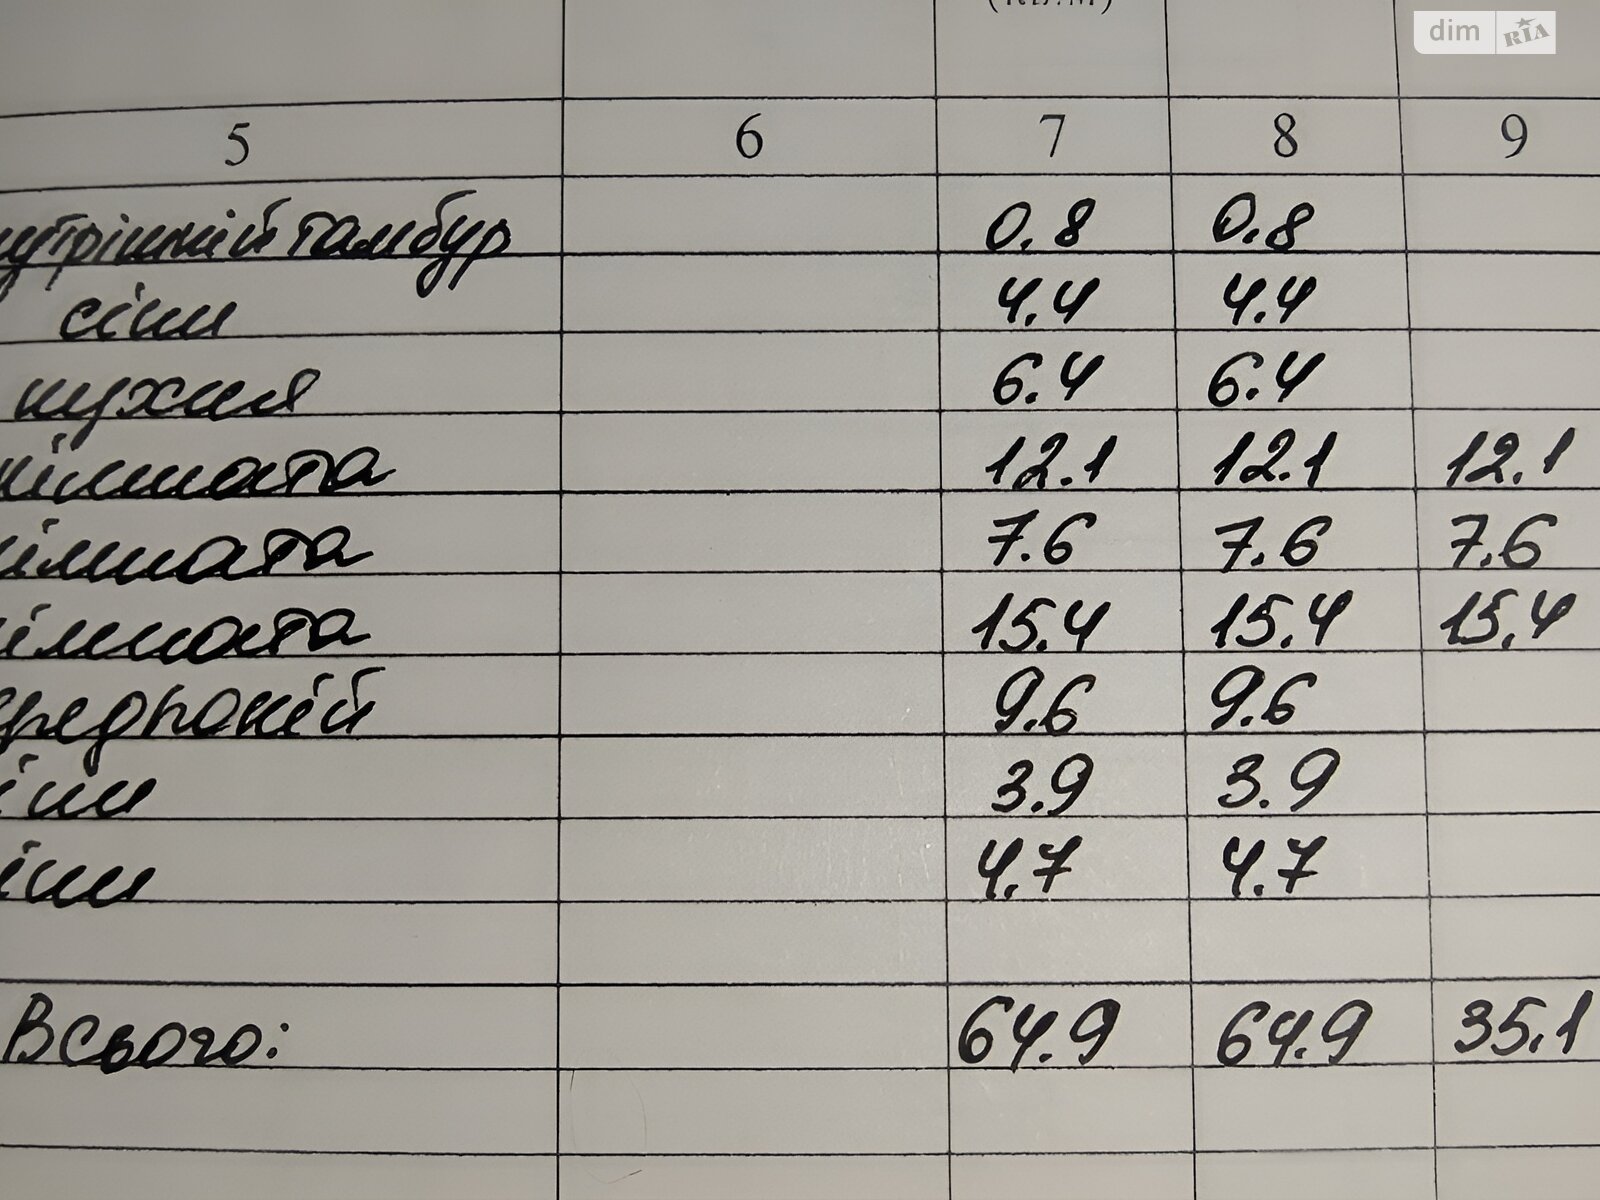 dim RIA
5 6 7 8 9
нутрішній тамбур 0.8 0.8
сіни 4.4 4.4
кухня 6.4 6.4
кімната 12.1 12.1 12.1
імната 7.6 7.6 7.6
імната 15.4 15.4 15.4
9.6 9.6
іни 3.9 3.9
іни 4.7 4.7
Всього: 64.9 64.9 35.1